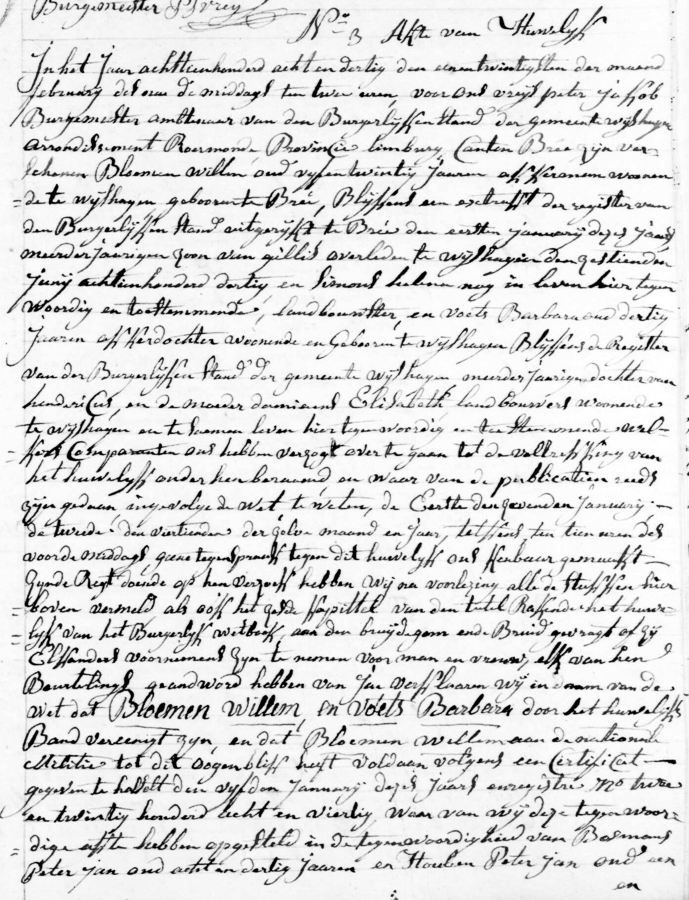 Burgemeester P J Vreys
No 3 Akte van Huwelyk
In het Jaar achttienhonderd acht en dertig den eenentwintigsten der maand
february des na de middags ten twee uren, voor ons vreys peter Jakob
Burgemeester ambtenaar van den Burgerlyken Stand der gemeente wyshagen
arrondissement Roermonde Provincie limburg Canton Brée zyn ver
schenen Bloemen willem oud vyfentwintig Jaaren akkerman woonen
de te wyshagen geboorente Brée, Blykens een extrakt der register van
den Burgerlyken Stand uitgereykt te Brée den eersten january dezes jaars
meerderjaerigen zoon van gillis overleden te wyshagen den zestienden
Juny achtienhonderd dertig en Simons helena nog in leven hier tegen
woordig en toestemmende, landbouwster, en voets Barbara oud dertig
Jaaren akkerdochter woonende en Gebooren te wyshagen Blykens de Register
van den Burgerlyken Stand der gemeente wyshagen meerder Jaerige dochter van
hendericus, en de moeder Elisabeth landbouwers woonende
te wyshagen en te saemen leven hier tegenwoordig en toestemmende wel-
ke Comparanten ons hebben verzogt over te gaan tot de voltrekking van
het huwelyk onder hen beraemd, en waar van de publicatien reeds
zyn gedaan ingevolge de wet te weten, de Eerste den zevenden January
de tweede den viertiende der zelve maand en Jaar, telkens ten tien uren des
voorde middags, geene tegenspraak tegen dit huwelyk ons kenbaer gemaakt
Zynde Regt doende op hen verzoek hebben wy na voorlezing alle de Stukken hier
boven vermeld als ook het zesde kapittel van den titel Rakende het huwe
lyk van het Burgerlyk wetboek, aan den bruydegom ende Bruid gevragt of zy
Elkanders voornemens zyn te nemen voor man en vrouw, elk van hen
Beurtelings geandword hebben van Jae verklaaren wy in daam van de
wet dat Bloemen Willem, en Voets Barbara door het huwelyks
Band vereenigt zyn, en dat Bloemen willem aan de nationale
Militie tot dit oogenblik heeft voldaan volgens een Certificat
gegeven te hasselt den vyfden January dezes Jaars enregistre No twee
en twintig honderd acht en viertig waar van wy deze tegenwoor-
dige akte hebben opgesteld in de tegenwoordigheid van Bosmans
Peter Jan oud acht en dertig jaaren en Houben Peter Jan oud een
en